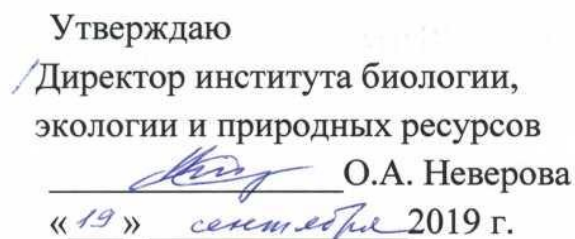 Утверждаю
Директор института биологии,
экологии и природных ресурсов
О.А. Неверова
«19» сентября 2019 г.